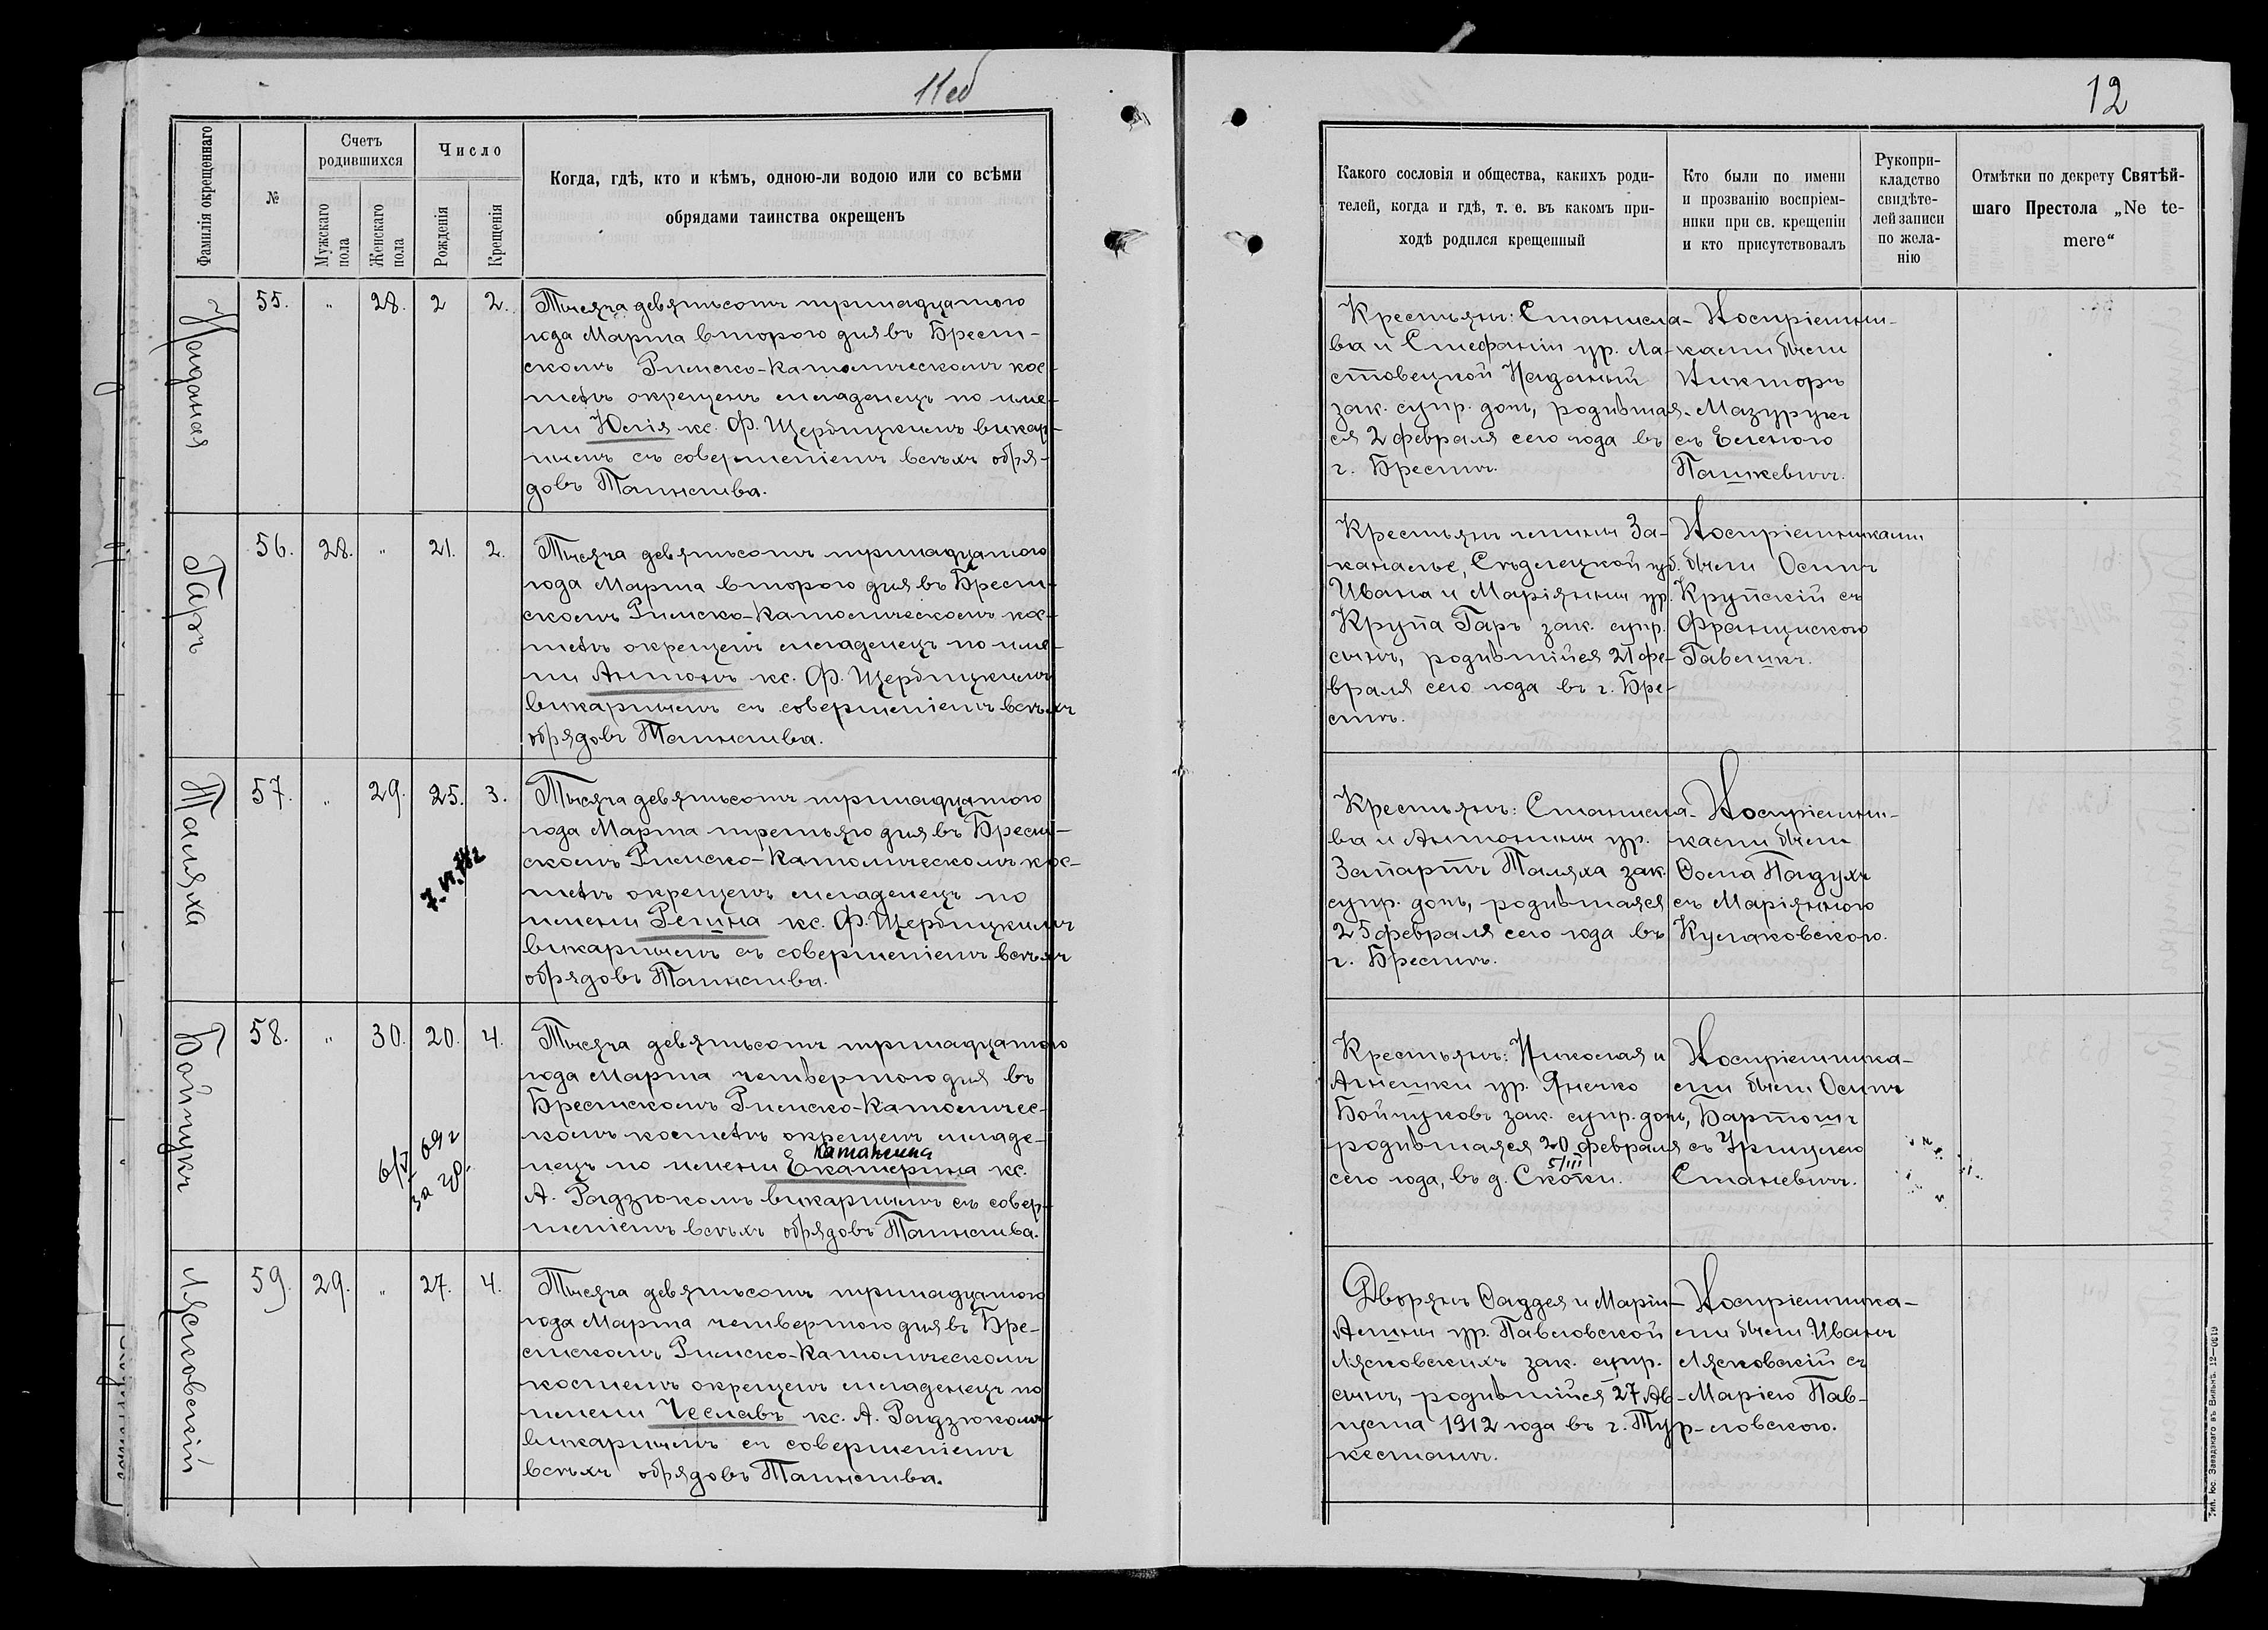 11об
Фамилія окрещеннаго
№
Счетъ
родившихся
Мужскаго
пола
Женскаго
пола
Число
Рожденія
Крещенія
Когда, гдѣ, кто и кѣмъ, одною-ли водою или со всѣми
обрядами таинства окрещенъ
55. „ 28. 2 2.
Тысяча девятьсотъ тринадцатого
года Марта второго дня въ Брест-
скомъ Римско-Католическомъ кос-
телѣ окрещенъ младенецъ по име-
ни Юлія кс. Ф. Щербицкимъ викар-
нымъ съ совершеніемъ всѣхъ обря-
довъ Таинства.
Гаръ
56. 28. „ 21. 2.
Тысяча девятьсотъ тринадцатого
года Марта второго дня въ Брест-
скомъ Римско-Католическомъ кос-
телѣ окрещенъ младенецъ по име-
ни Антонъ кс. Ф. Щербицкимъ
викарнымъ съ совершеніемъ всѣхъ
обрядовъ Таинства.
Таляха
57. „ 29. 25. 3.
Тысяча девятьсотъ тринадцатого
года Марта третьяго дня въ Брест-
скомъ Римско-Католическомъ кос-
телѣ окрещенъ младенецъ по
имени Регина кс. Ф. Щербицкимъ
викарнымъ съ совершеніемъ всѣхъ
обрядовъ Таинства.
Бойчукъ
58. „ 30. 20. 4.
Тысяча девятьсотъ тринадцатого
года Марта четвертого дня въ
Брестскомъ Римско-Католичес-
комъ костелѣ окрещенъ младе-
нецъ по имени Екатерина кс.
А. Радзюкомъ викарнымъ съ совер-
шеніемъ всѣхъ обрядовъ Таинства.
Лясковскій
59. 29. „ 27. 4.
Тысяча девятьсотъ тринадцатого
года Марта четвертого дня въ Бре-
стскомъ Римско-Католическомъ
костелѣ окрещенъ младенецъ по
имени Чеславъ кс. А. Радзюкомъ
викарнымъ съ совершеніемъ
всѣхъ обрядовъ Таинства.
12
Какого сословія и общества, какихъ роди-
телей, когда и гдѣ, т. е. въ какомъ при-
ходѣ родился крещенный
Кто были по имени
и прозванію воспріем-
ники при св. крещеніи
и кто присутствовалъ
Рукопри-
кладство
свидѣте-
лей записи
по жела-
нію
Отмѣтки по декрету Святѣй-
шаго Престола „Ne te-
mere“
Крестьянъ: Станисла-
ва и Стефаніи ур. Ла-
стовецкой
зак. супр. дочь, родивша-
яся 2 февраля сего года въ
г. Брестѣ.
Воспріемни-
ками были
Викторъ
Мазурукъ
съ Еленою
Пашкевичъ.
Крестьянъ гмины За-
каналье, Сѣдлецкой губ.
Ивана и Маріянны ур.
Крупа Гаръ зак. супр.
сынъ, родившійся 21 фе-
враля сего года въ г. Бре-
стѣ.
Воспріемниками
были Осипъ
Крупскій съ
Францискою
Гавеликъ.
Крестьянъ: Станисла-
ва и Антонины ур.
Запартъ Таляха зак.
супр. дочь, родившаяся
25 февраля сего года въ
г. Брестѣ.
Воспріемни-
ками были
Ѳома Падухъ
съ Маріянною
Кулаковскою.
Крестьянъ: Николая и
Агнешки ур. Янечко
Бойчуковъ зак. супр. дочь,
родившаяся 20 февраля
5/III
сего года, въ д. Скоки.
Воспріемника-
ми были Осипъ
Бартошъ
съ Урщулею
Станевичъ.
Дворянъ Ѳаддея и Маріи-
Аллины ур. Павловской
Лясковскихъ зак. супр.
сынъ, родившійся 27 Ав-
густа 1912 года въ г. Тур-
кестанѣ.
Воспріемника-
ми были Иванъ
Лясковскій съ
Маріею Пав-
ловскою.
Тип. Юс. Завадзкаго въ Вильнѣ. 12—0619